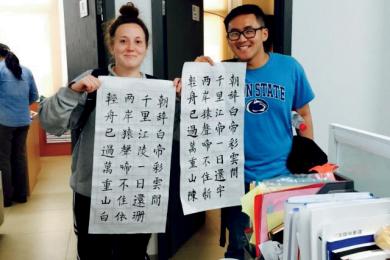 朝辭白帝彩雲間
千里江陵一日還珊
兩岸猿聲啼不住依
輕舟已過萬重山白
朝辭白帝彩雲間
千里江陵一日還宇
兩岸猿聲啼不住忻
輕舟已過萬重山陳
N STATE